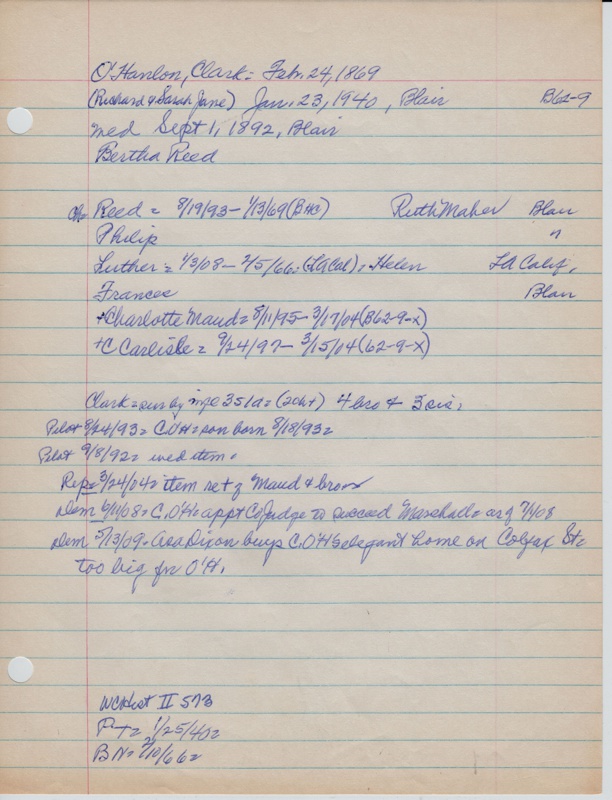 O'Hanlon, Clark = Feb. 24, 1869
(Richard & Sarah Jane) Jan. 23, 1940, Blair B62-9
med Sept 1, 1892, Blair
Bertha Reed
Ch= Reed = 8/19/93 - 1/13/69 (BHC) Ruth Maher Blair
Philip "
Luther = 1/3/08 - 2/5/66 = (LA Cal) = Helen LA Calif,
Frances Blair
+Charlotte Maud = 8/11/95 - 3/17/04 (B62-9-x)
+C Carlisle = 9/24/97 - 3/15/04 (62-9-x)
Clark = sur by 4 bro & 3 sis,
Pilot 8/24/93 = C.O'H = son born 8/18/93=
Pilot 9/8/92 = wed item.
Rep= 3/24/04 = item ret of Maud & bro
Dem 6/11/08 = C. O'H = appt Co Judge to succeed Marshall = 7/1/08
Dem 5/13/09 = Asa Dixon buys C. O'H's elegant home on Colfax St=
too big for O'H.
WCHist II 573
PT= 1/25/40=
BN= 2/10/66=